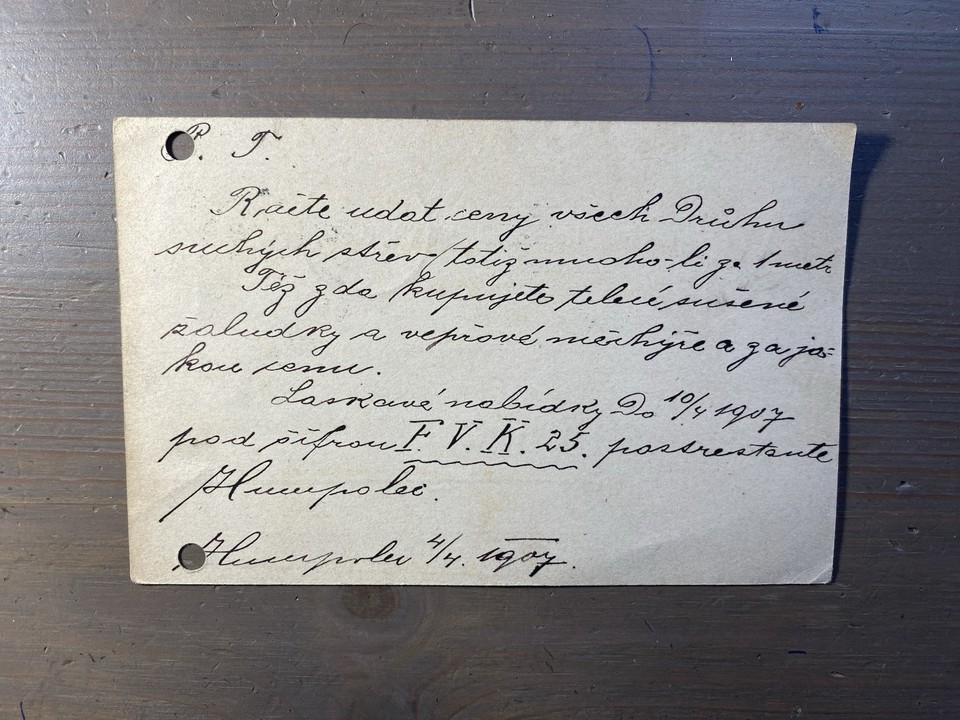 P. T.
Račte udat ceny všech Drůhu
suchých střev /totiž mnoho-li za 1 metr
Též zda kupujete telecí sušené
žaludky a vepřové měchýře a za ja=
kou cenu.
Laskavé nabídky Do 10/4 1907
pod šifrou F. V. K. 25. postrestante
Humpolec.
Humpolec 4/4. 1907.